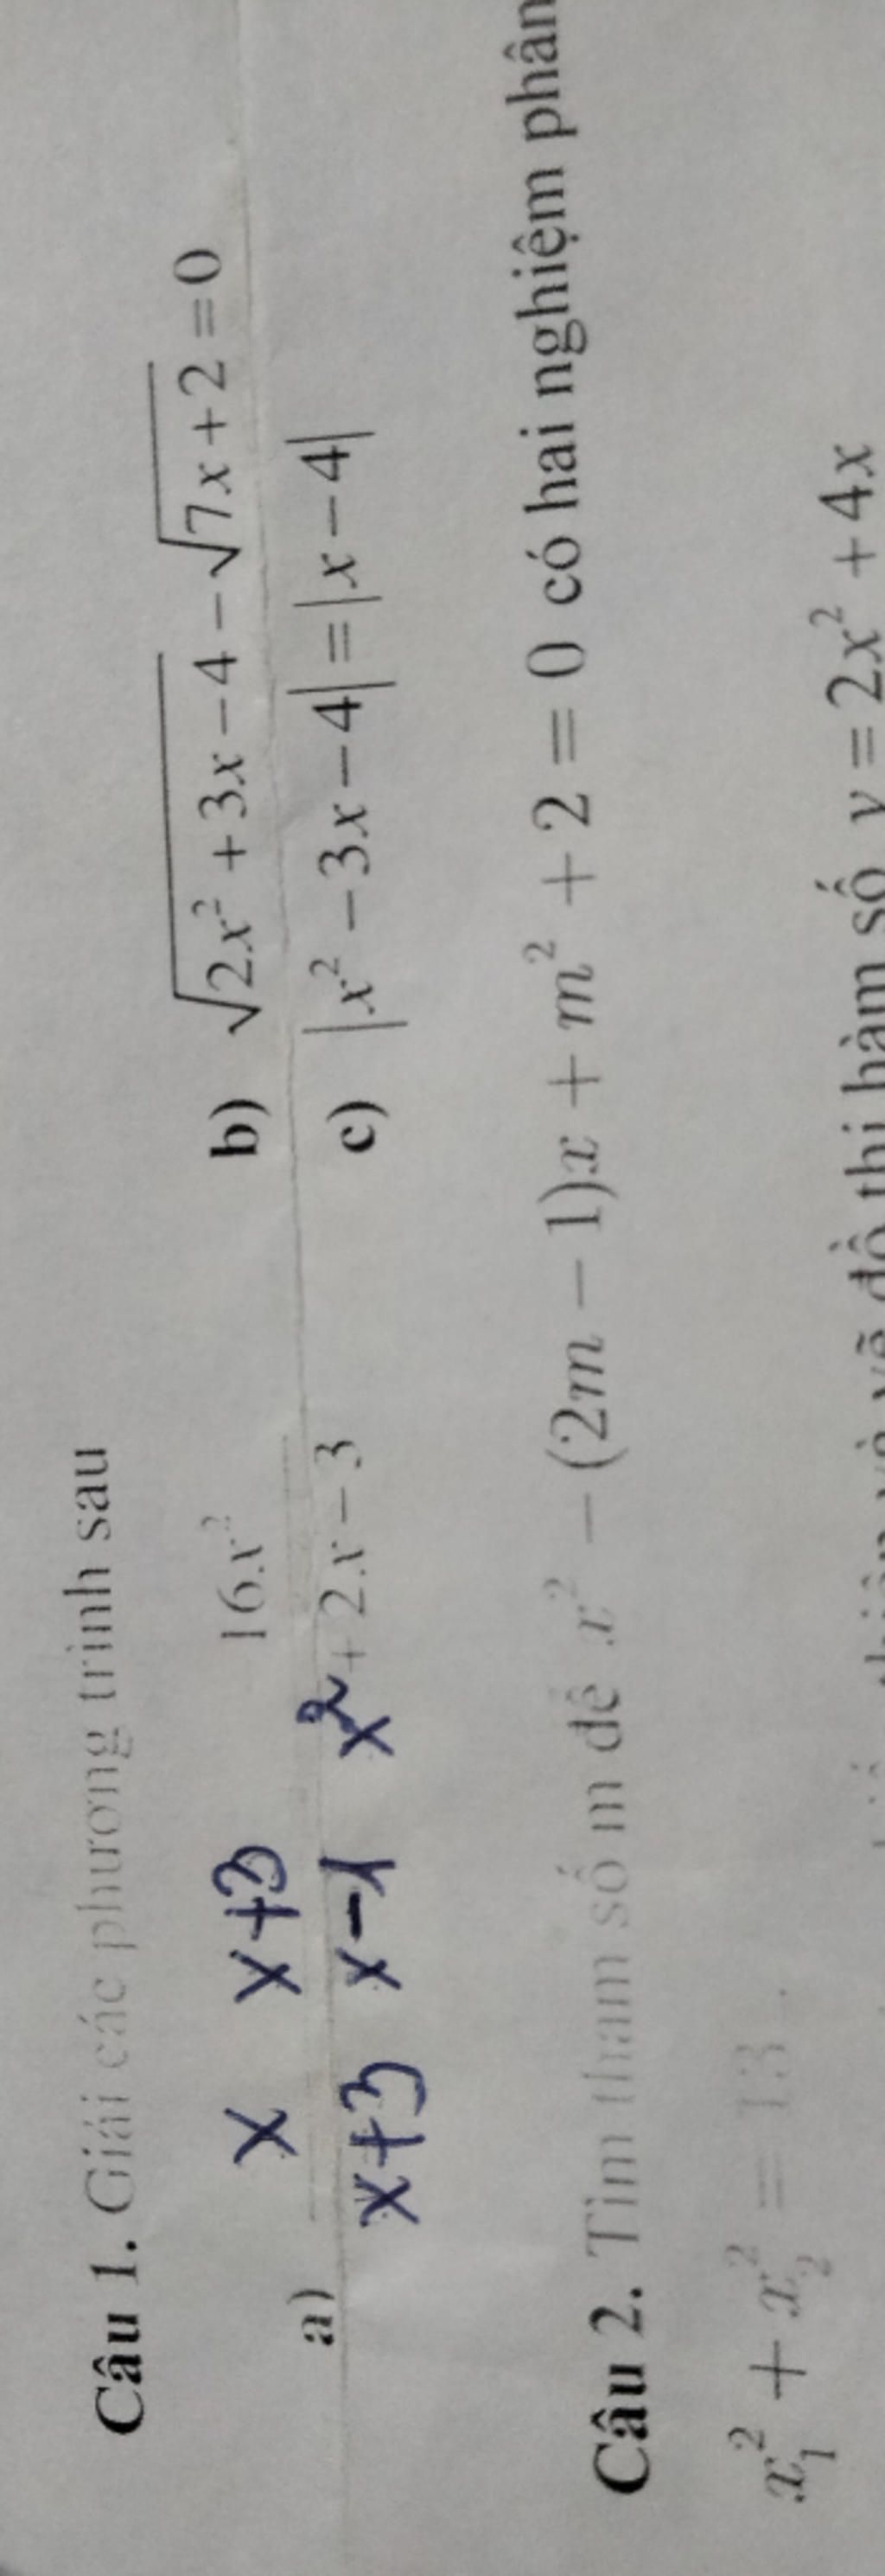 Câu 1. Giải các phương trình sau
a) x x+3 16x² b) √2x² + 3x − 4 − √7x + 2 = 0
x+3 x−1 x² + 2x − 3 c) |x² − 3x − 4| = |x − 4|
Câu 2. Tìm tham số m để x² − (2m − 1)x + m² + 2 = 0 có hai nghiệm phân
x₁² + x₂² = 13.
vẽ đồ thị hàm số y = 2x² + 4x